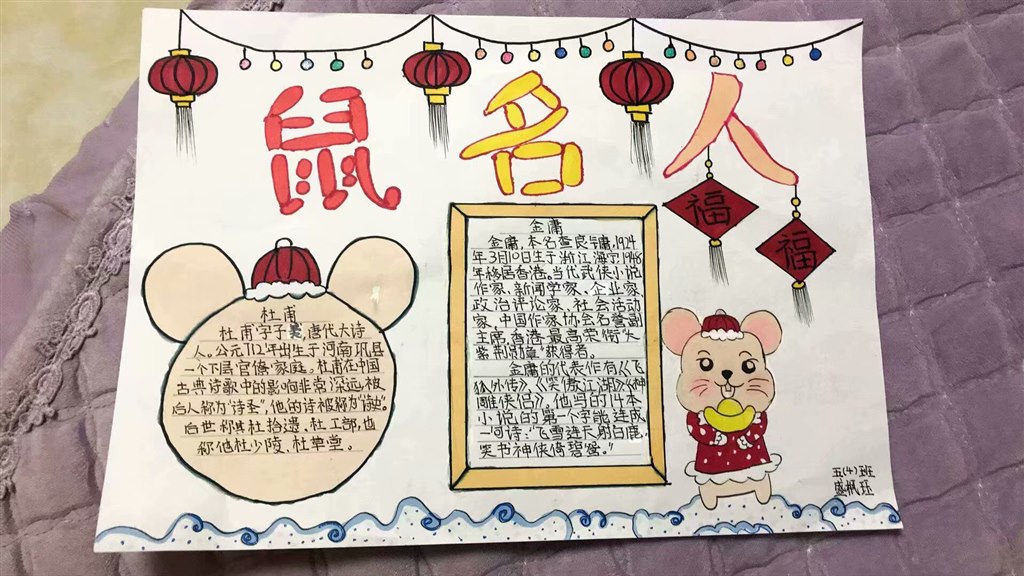 鼠名人
福
福
杜甫
杜甫字子美,唐代大诗
人。公元712年出生于河南巩县
一个下层官僚家庭。杜甫在中国
古典诗歌中的影响非常深远,被
后人称为“诗圣”,他的诗被称为“诗史”。
后世称其杜拾遗、杜工部,也
称他杜少陵、杜草堂。
金庸
金庸,本名查良镛,1924
年3月10日生于浙江海宁,1948
年移居香港。当代武侠小说
作家、新闻学家、企业家
政治评论家、社会活动
家,中国作家协会名誉副
主席,香港最高荣衔“大
紫荆勋章”获得者。
金庸的代表作有《飞
狐外传》,《笑傲江湖》《神
雕侠侣》,他写的14本
小说的第一个字能连成
一句诗:“飞雪连天射白鹿,
笑书神侠倚碧鸳。”
五(4)班
盛枫珏